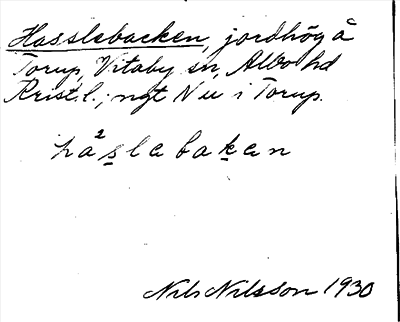 Hasslebacken, jordhög å
Torup, Vitaby sn, Albo hd
Krist. l.; ngt N u i Torup.
ha²slebaken
Nils Nilsson 1930